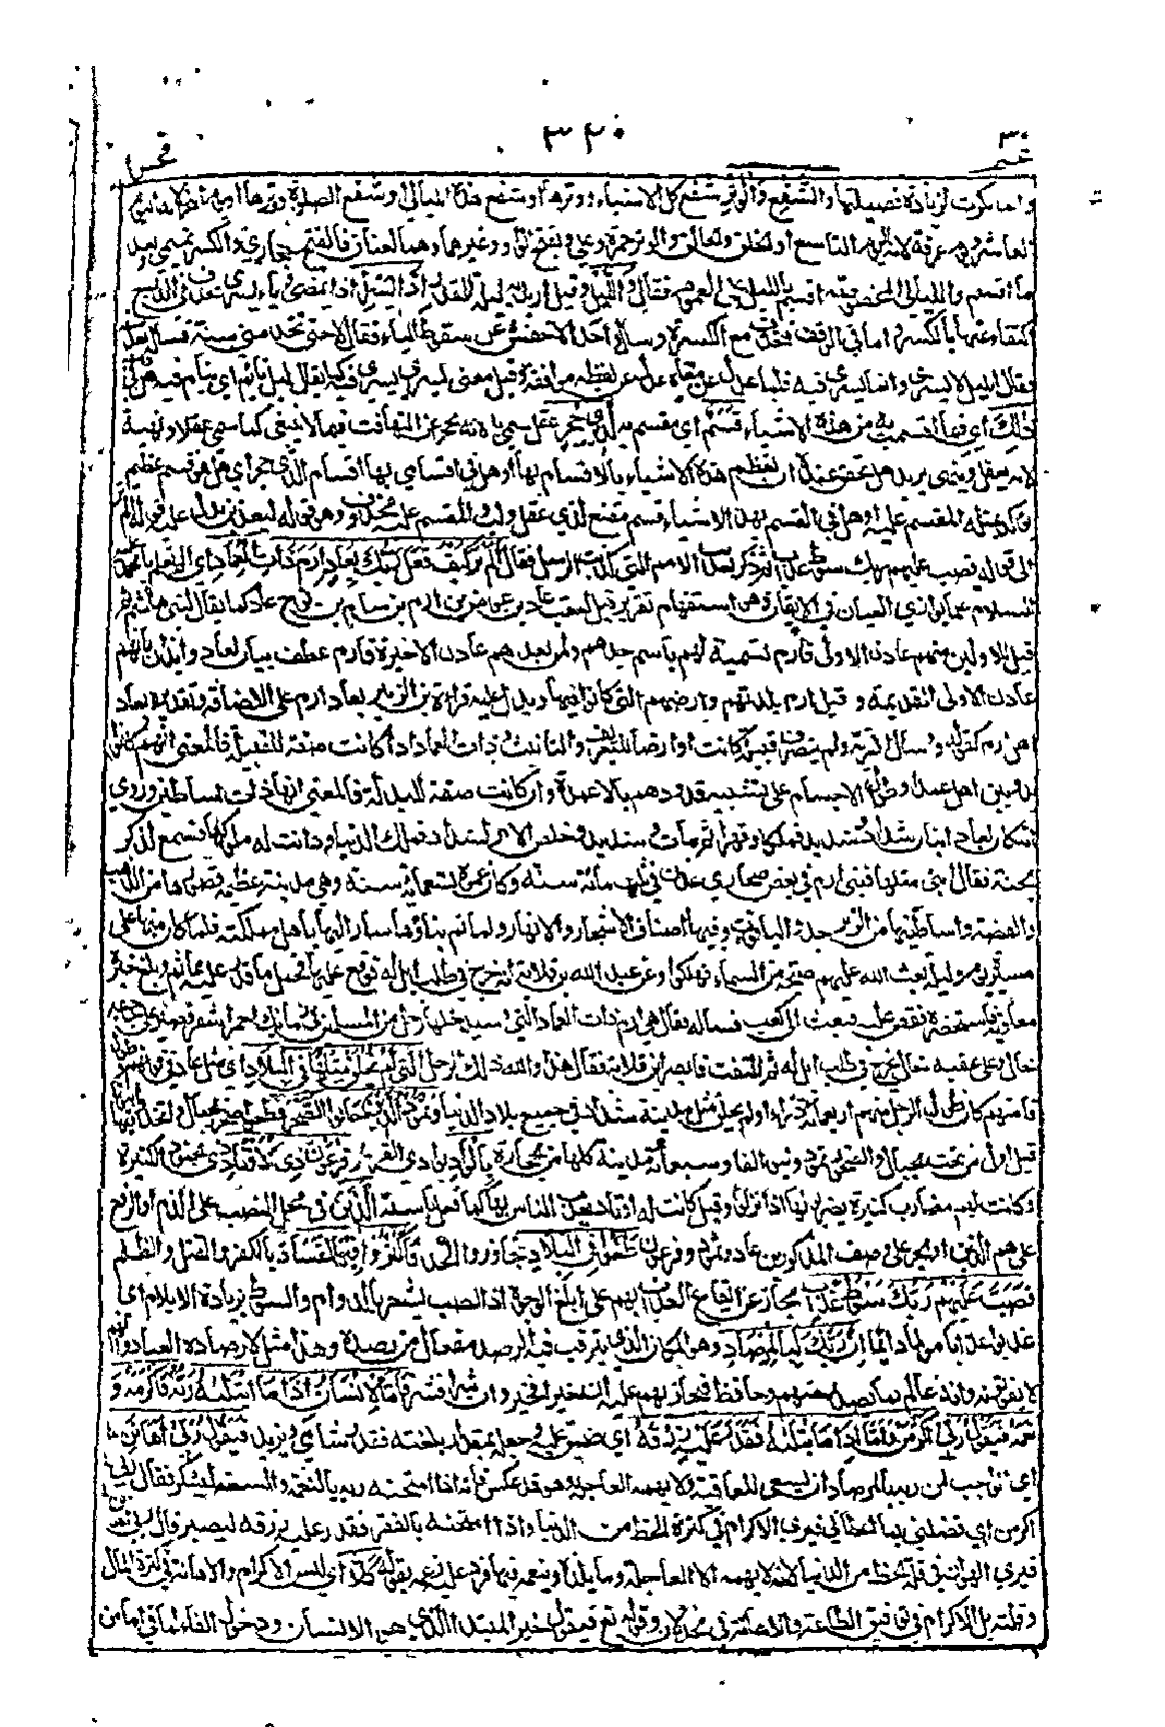 ٣٢٠
٣٠
عم
فجر
وانما نكرت لزيادة فضيلتها والشفع والوتر شفع كل الاشياء ووترها او شفع هذه الليالي او شفع الصلوة ووترها او يوم النحر لانه اليوم
العاشر ويوم عرفة لانه اليوم التاسع او الخلق والخالق والوتر حمزة وعلي وبفتح الواو وغيرهما وهما لغتان فالفتح حجازي والكسر تميمي وبعد
ما اقسم بالليالي المخصوصة اقسم بالليل على العموم فقال والليل وقيل اريد به ليلة القدر اذا يسر اذا يمضي وياء يسر تحذف في الدرج
اكتفاء عنها بالكسرة واما في الوقف فتحذف مع الكسرة وسأل واحد الاخفش عن سقوط الياء فقال لا حتى تخدمني سنة فسأله بعد
فقال الليل لا يسري وانما يسرى فيه فلما عدل عن معناه عدل عن لفظه موافقة وقيل معنى يسري يسرى فيه كما يقال ليل نائم اي ينام فيه هل في
ذلك اي فيما اقسمت به من هذه الاشياء قسم اي مقسم به لذي حجر عقل سمي به لانه يحجر عن التهافت فيما لا ينبغي كما سمي عقلا ونهية
لانه يعقل وينهى يريد هل تحق عنده ان تعظم هذه الاشياء بالاقسام بها او هل في اقسامي بها اقسام لذي حجر اي هل هو قسم عظيم
يؤكد بمثله المقسم عليه او هل في القسم بهذه الاشياء قسم مقنع لذي عقل ولب والمقسم عليه محذوف وهو قوله ليعذبن يدل عليه قوله الم تر
الى قوله فصب عليهم ربك سوط عذاب ثم ذكر تعذيب الامم التي كذبت الرسل فقال الم تر كيف فعل ربك بعاد ارم ذات العماد اي الم تعلم يا محمد
علما يوازي العيان في الايقان وهو استفهام تقرير قيل لعقب عاد بن عوص بن ارم بن سام بن نوح عاد كما يقال لبني هاشم هاشم ثم
قيل للاولين منهم عاد الاولى وارم تسمية لهم باسم جدهم ولمن بعدهم عاد الاخيرة فارم عطف بيان لعاد وايذان بانهم
عاد الاولى القديمة وقيل ارم بلدتهم وارضهم التي كانوا فيها ويدل عليه قراءة بن الزبير بعاد ارم على الاضافة وتقديره بعاد
اهل ارم كقوله وسال القرية ولم تنصرف قبيلة كانت او ارضا للتعريف والتانيث وذات العماد اذا كانت صفة للقبيلة فالمعنى انهم كانوا
بدويين اهل عمد او طوال الاجسام على تشبيه قدودهم بالاعمدة وان كانت صفة للبلدة فالمعنى انها ذات اساطين وروي
انه كان لعاد ابنان شداد وشديد فملكا وقهرا ثم مات شديد وخلص الامر لشداد فملك الدنيا ودانت له ملوكها فسمع بذكر
الجنة فقال ابني مثلها فبنى ارم في بعض صحاري عدن في ثلث مائة سنة وكان عمره تسعمائة سنة وهي مدينة عظيمة قصورها من الذهب
والفضة واساطينها من الزبرجد والياقوت وفيها اصناف الاشجار والانهار ولما تم بناؤها سار اليها باهل مملكته فلما كان منها على
مسيرة يوم وليلة بعث الله عليهم صيحة من السماء فهلكوا وعن عبد الله بن قلابة انه خرج في طلب ابل له فوقع عليها فحمل ما قدر عليه مما ثم وبلغ خبره
معاوية فاستحضره فقص عليه فبعث الى كعب فساله فقال هي ارم ذات العماد التي سيدخلها رجل من المسلمين في زمانك احمر اشقر قصير على حاجبه
خال وعلى عقبه خال يخرج في طلب ابل له ثم التفت فابصر ابن قلابة فقال هذا والله ذلك الرجل التي لم يخلق مثلها في البلاد اي مثل عاد في قوتهم وطول
قامتهم كان طول الرجل منهم اربعمائة ذراع او لم يخلق مثل مدينة شداد في جميع بلاد الدنيا وثمود الذين جابوا الصخر قطعوا صخر الجبال واتخذوا فيها بيوتا
قيل اول من نحت الجبال والصخور ثمود وبنوا الفا وسبعمائة مدينة كلها من الحجارة بالواد بوادي القرى وفرعون ذي الاوتاد ذي الجنود الكثيرة
وكانت لهم مضارب كثيرة يضربونها اذا نزلوا وقيل كانت له اوتاد يعذب الناس بها كما فعل بآسية الذين في محل النصب على الذم او الرفع
على هم الذين او الجر على وصف المذكورين عاد وثمود وفرعون طغوا في البلاد تجاوزوا الحد فاكثروا فيها الفساد بالكفر والقتل والظلم
فصب عليهم ربك سوط عذاب مجاز عن ايقاع العذاب بهم على ابلغ الوجوه اذ الصب يشعر بالدوام والسوط بزيادة الايلام اي
عذبوا عذابا مؤلما دائما ان ربك لبالمرصاد وهو المكان الذي يترقب فيه الرصد مفعال من رصده وهذا مثل لارصاده العباد وانهم
لا يفوتونه وانه عالم بما يصدر منهم وحافظ فيجازيهم عليه ان خيرا فخير وان شرا فشر فاما الانسان اذا ما ابتلاه ربه فاكرمه و
نعمه فيقول ربي اكرمن واما اذا ما ابتلاه فقدر عليه رزقه اي ضيق عليه وجعله بمقدار بلغته فقدر شامي ويزيد فيقول ربي اهانن
اي الواجب لمن ربه بالمرصاد ان يسعى للعاقبة ولا يهمه العاجلة وهو قد عكس فانه اذا امتحنه ربه بالنعمة والسعة ليشكر فقال ربي
اكرمن اي فضلني بما اعطاني فيرى الاكرام في كثرة الحظ من الدنيا واذا امتحنه بالفقر فقدر عليه رزقه ليصبر قال ربي اهانن
فيرى الهوان في قلة الحظ من الدنيا لانه لا يهمه الا العاجلة وما يلذه وينعمه فيها فرد عليه زعمه بقوله كلا اي ليس الاكرام والاهانة في كثرة المال
وقلته بل الاكرام في توفيق الطاعة والاهانة في الخذلان وقوله تع فيقول خبر المبتدا الذي هو الانسان ودخول الفاء لما في اما من